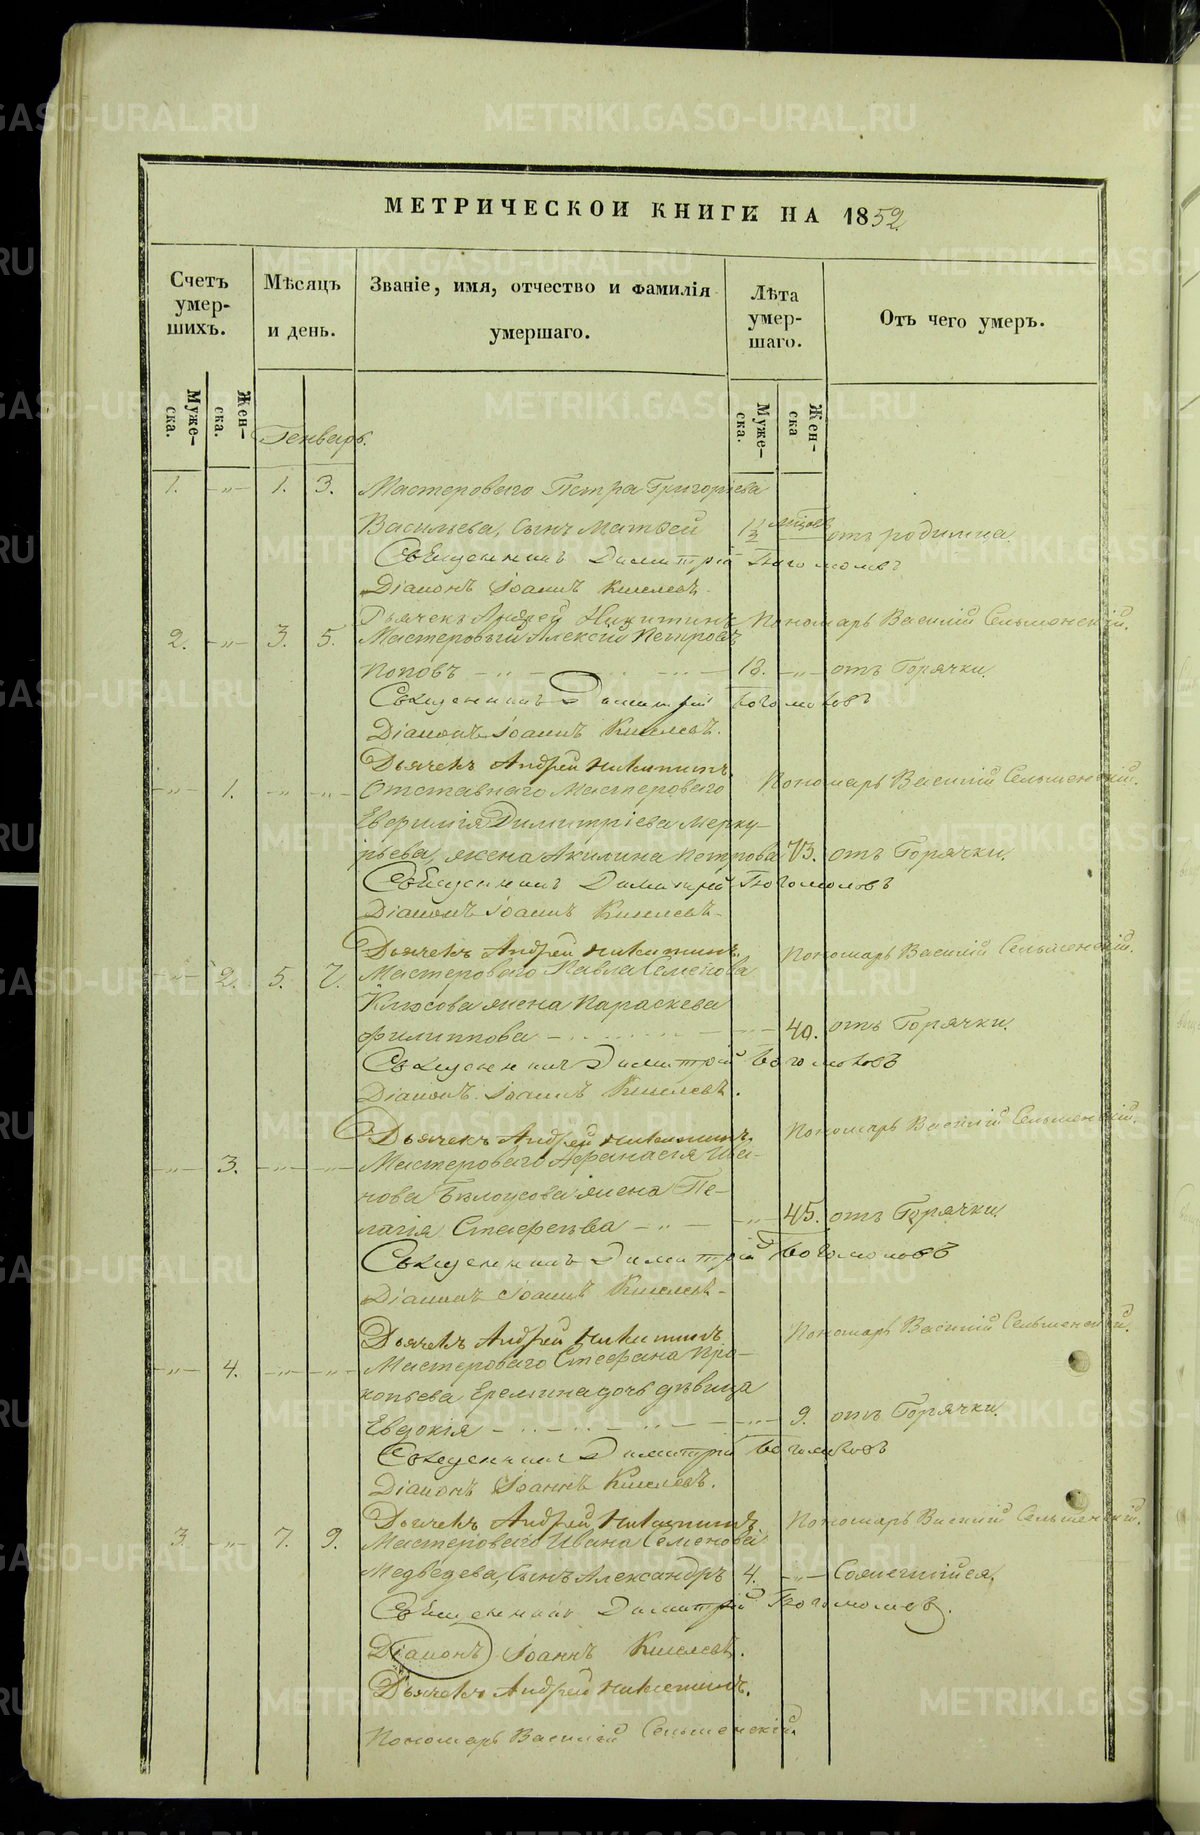 МЕТРИЧЕСКОЙ КНИГИ НА 1852.
Счетъ умершихъ.
Мѣсяцъ и день.
Званіе, имя, отчество и фамилія умершаго.
Лѣта умершаго.
Отъ чего умеръ.
Мужеска.
Женска.
Мужеска.
Женска
Генварь.
1. -"- 1. 3. Мастероваго Петра Григорьева
Васильева, сынъ Матвей 1½ отъ родимца
Священникъ Димитрій Богомоловъ
Діаконъ Іоаннъ Киселевъ.
Дьячекъ Андрей Никитинъ Пономарь Василій Сельменскій.
2. -"- 3. 5. Мастеровый Алексей Петровъ
Поповъ -"- 18. -"- отъ Горячки.
Священникъ Димитрій Богомоловъ
Діаконъ Іоаннъ Киселевъ.
Дьячекъ Андрей Никитинъ. Пономарь Василій Сельменскій.
-"- 1. -"- -"- Отставнаго Мастероваго
Димитріева Мерку-
рьева, жена Акилина Петрова 73. отъ Горячки.
Священникъ Димитрій Богомоловъ
Діаконъ Іоаннъ Киселевъ.
Дьячекъ Андрей Никитинъ. Пономарь Василій Сельменскій.
-"- 2. 5. 7. Мастероваго Павла Семенова
Клюсова жена Параскева
Филиппова -"- 40. отъ Горячки.
Священникъ Димитрій Богомоловъ
Діаконъ Іоаннъ Киселевъ.
Дьячекъ Андрей Никитинъ. Пономарь Василій Сельменскій.
-"- 3. -"- -"- Мастероваго Афанасія Ива-
нова Бѣлоусова жена Пе-
лагія Стефанова -"- -"- 45. отъ Горячки.
Священникъ Димитрій Богомоловъ
Діаконъ Іоаннъ Киселевъ.
Дьячекъ Андрей Никитинъ Пономарь Василій Сельменскій.
-"- 4. -"- -"- Мастероваго Стефана Про-
копьева Еремина дочь дѣвица
Евдокія -"- -"- 9. отъ Горячки.
Священникъ Димитрій Богомоловъ
Діаконъ Іоаннъ Киселевъ.
Дьячекъ Андрей Никитинъ Пономарь Василій Сельменскій.
3. -"- 7. 9. Мастероваго Ивана Семенова
Медведева, сынъ Александръ 4. -"- Сожегшійся.
Священникъ Димитрій Богомоловъ.
Діаконъ Іоаннъ Киселевъ.
Дьячекъ Андрей Никитинъ.
Пономарь Василій Сельменскій.
METRIKI.GASO-URAL.RU